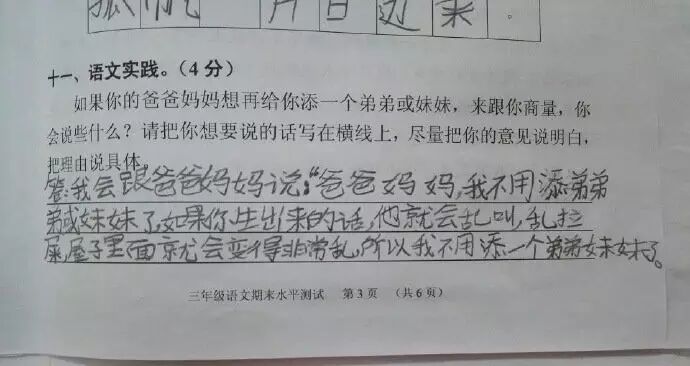 孤帆一片日边来。
十一、语文实践。（4 分）
如果你的爸爸妈妈想再给你添一个弟弟或妹妹，来跟你商量，你
会说些什么？请把你想要说的话写在横线上，尽量把你的意见说明白，
把理由说具体。
答：我会跟爸爸妈妈说：“爸爸妈妈，我不用添弟弟
弟或妹妹了，如果你生出来的话，他就会乱叫，乱拉
屎，屋子里面就会变得非常乱，所以我不用添一个弟弟妹妹了。
三年级语文期末水平测试 第 3 页 （共 6 页）